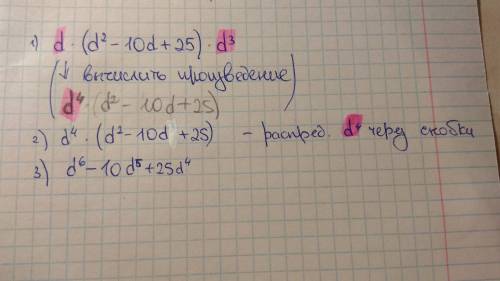 1) d · (d² − 10d + 25) · d³
(↓ вычислить произведение
d⁴ · (d² − 10d + 25))
2) d⁴ · (d² − 10d + 25) – распред. d⁴ через скобки
3) d⁶ − 10d⁵ + 25d⁴